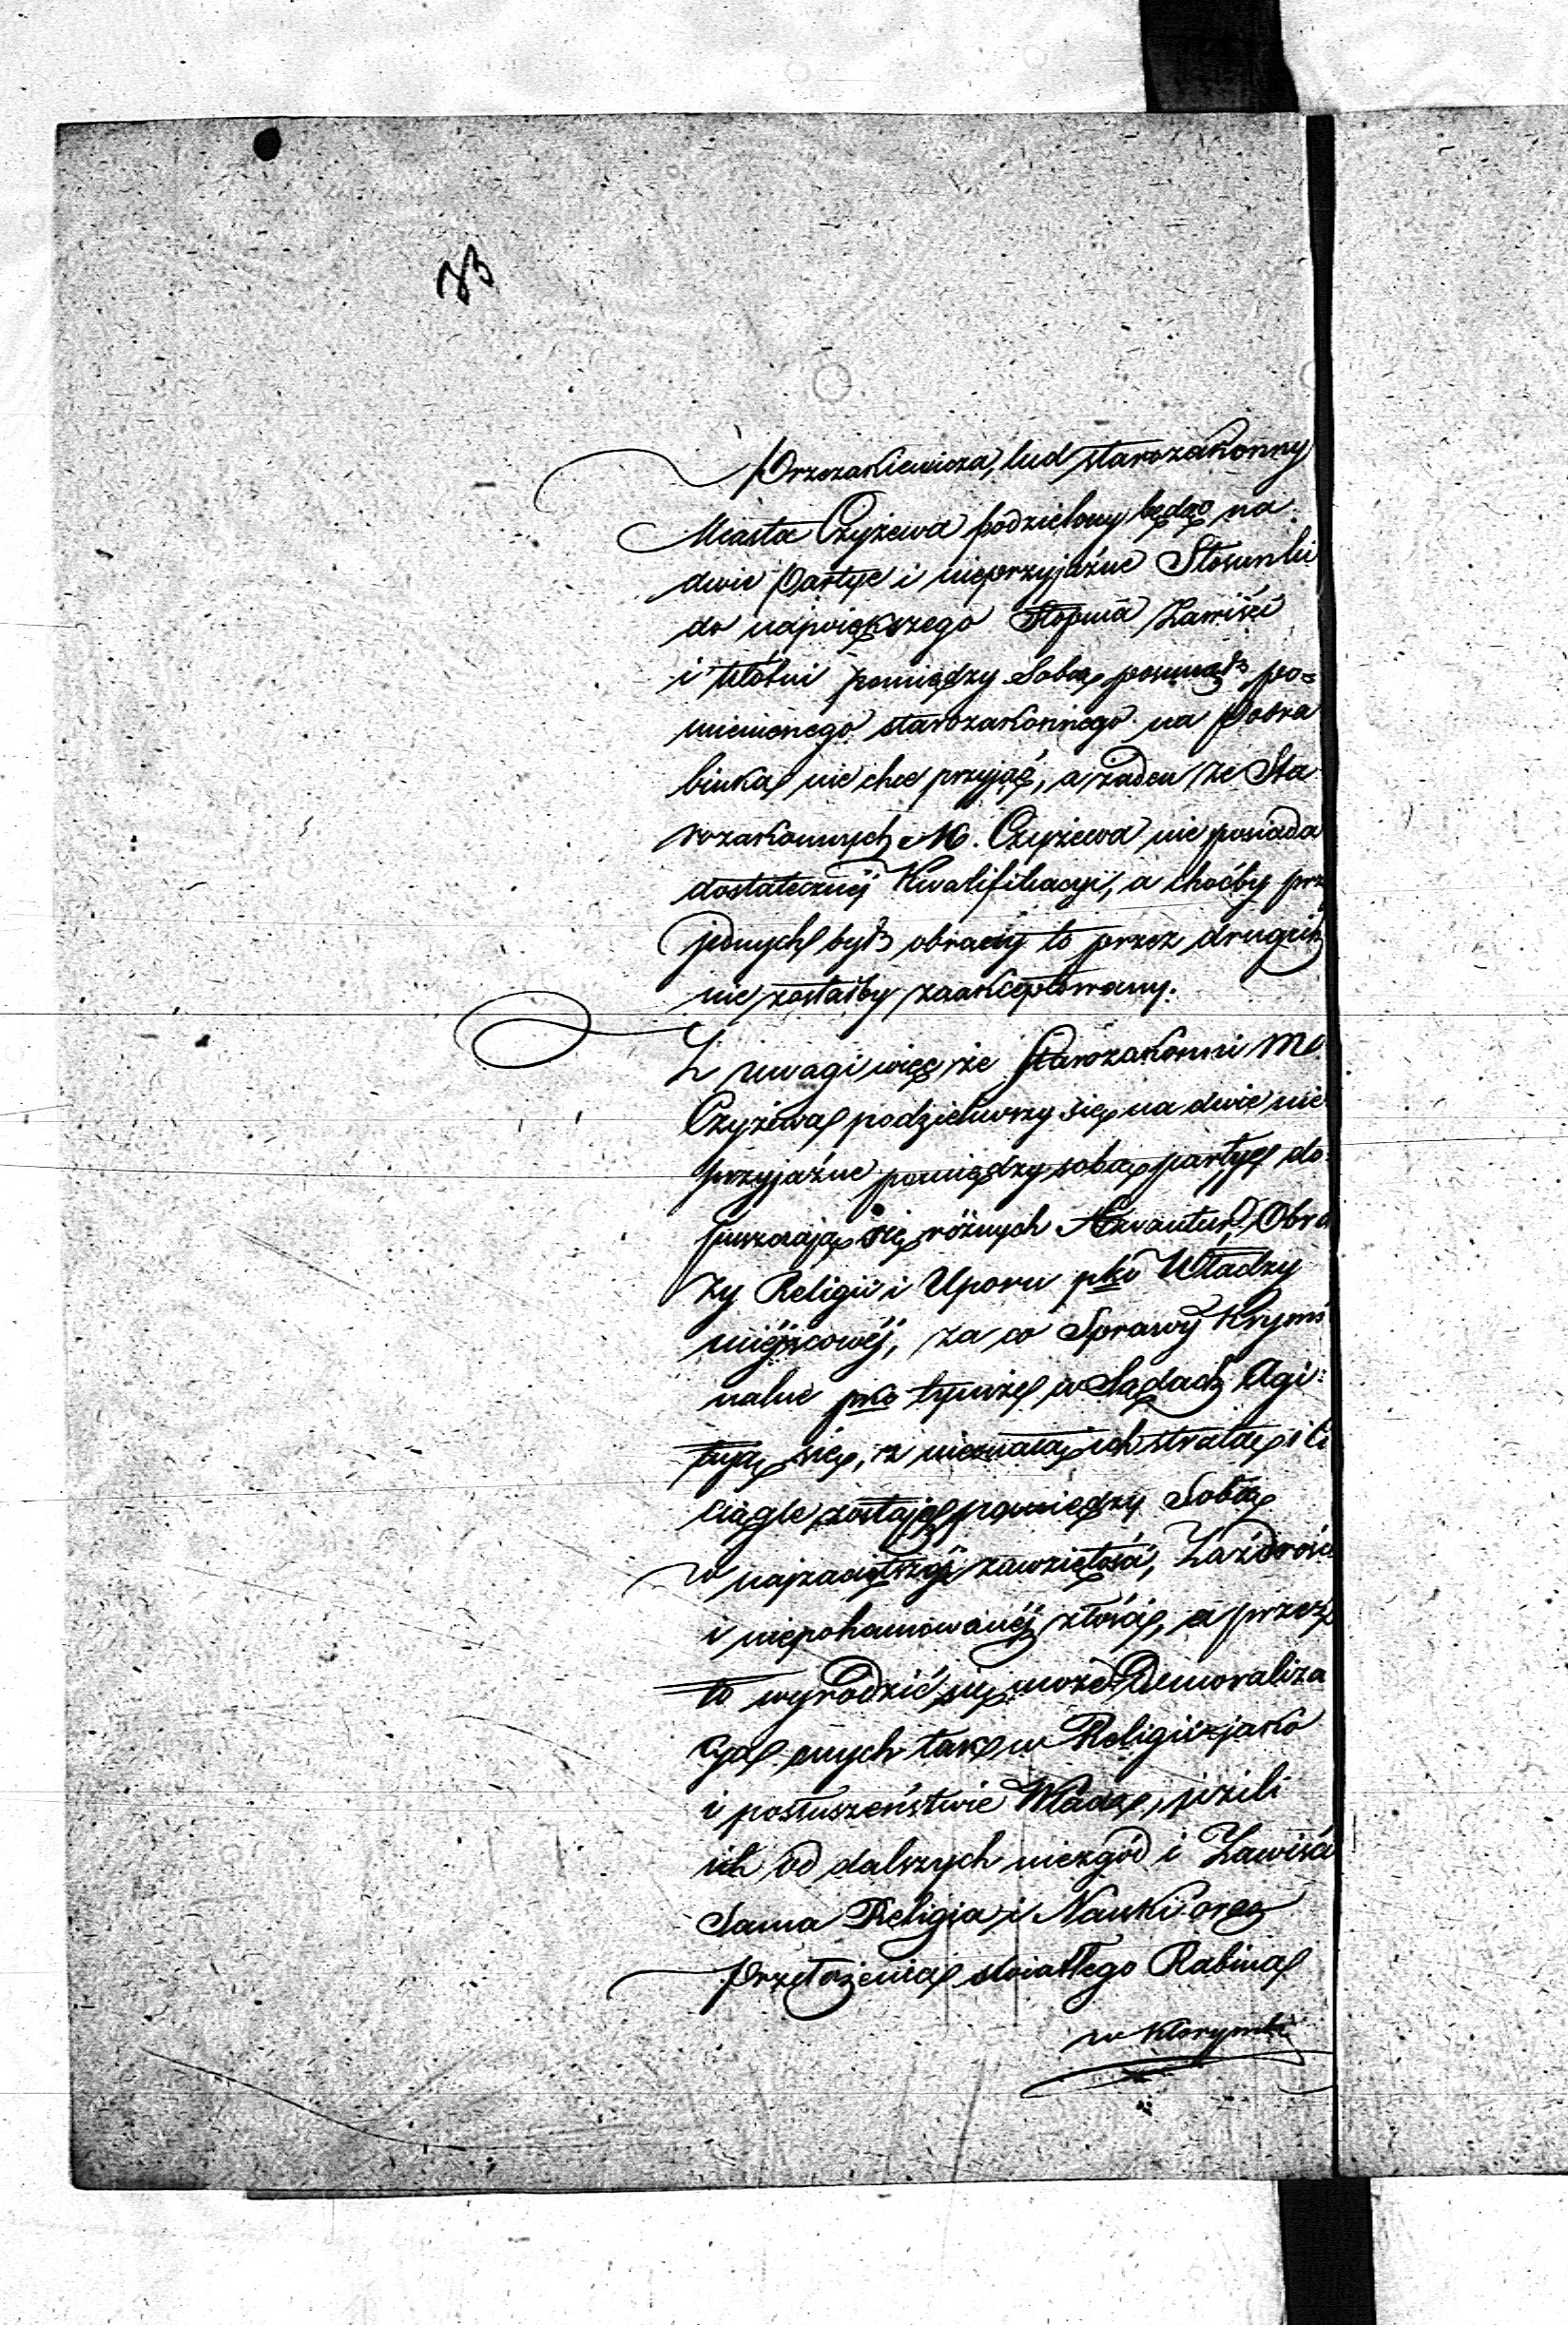 83
Przezakiewicza, lud starozakonny
Miasta Czyżewa podzielony będąc na
dwie Partye i nieprzyjaźne Stosunki
do największego Stopnia Zawiści
i kłótni pomiędzy Sobą posunął po=
mienionego starozakonnego na Podra
binka nie chce przyjąć, a żaden ze Sta
rozakonnych M. Czyżewa nie posiada
dostatecznéj Kwalifikacyi, a choćby prz
jednych był obrany to przez drugich
nie zostałby zaakceptowany.
Z uwagi więc że Starozakonni M.
Czyżewa podzieliwszy się na dwie nie
przyjaźne pomiędzy sobą partye do
puszczają się różnych Awantur, Obra
zy Religii i Uporu pko Władzy
miéjscowéj, za co Sprawy Krymi
nalne pko tymże w Sądach Agi:
tują się, z nieznaczą ich stratą i
ciągle zostają pomiędzy Sobą
w najzaciętszéj zawziętości, Zazdrości
i niepohamowanéj złości, a przez
to wyrodzić się może Demoraliza
cya onych tak w Religii jako
i posłuszeństwie Władzy, jeżeli
ich od dalszych niezgód i Zawiści
Sama Religia i Nauki oraz
Przełożenia światłego Rabina
w którymby